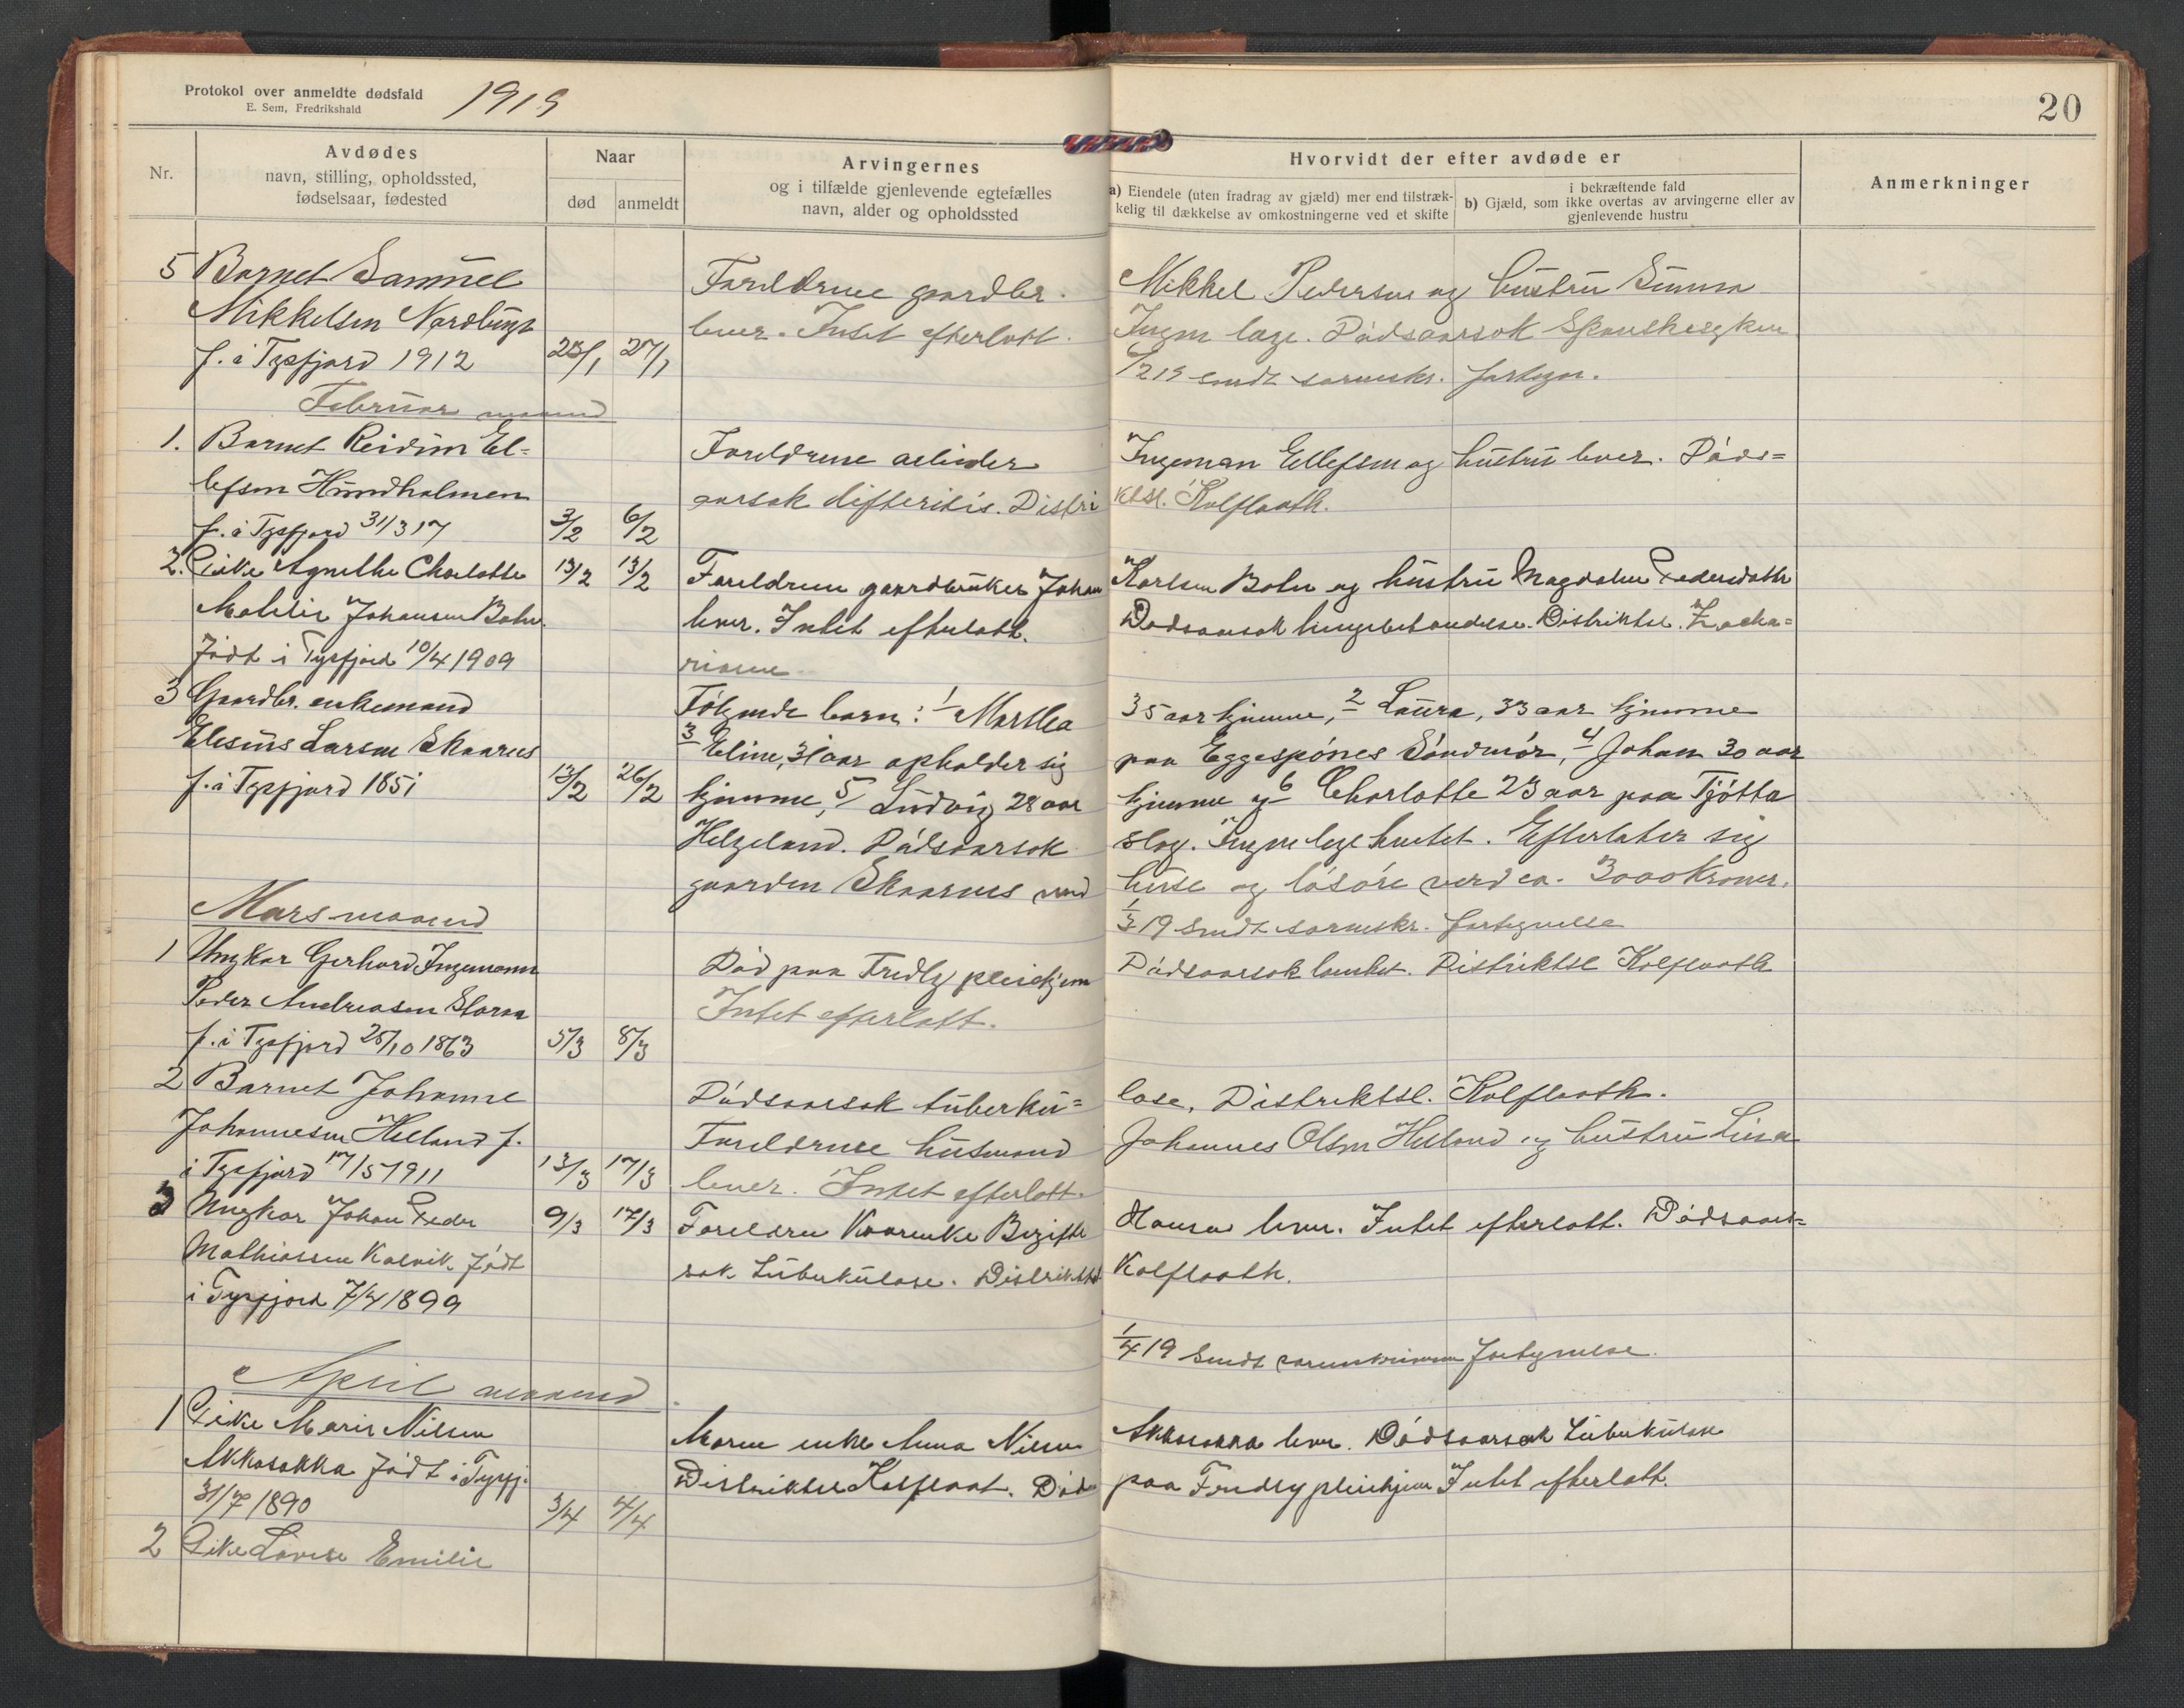 Protokol over anmeldte dødsfald
E. Sem, Fredrikshald
1919
20
Nr.
Avdødes
navn, stilling, opholdssted,
fødselsaar, fødested
Naar
død
anmeldt
Arvingernes
og i tilfælde gjenlevende egtefælles
navn, alder og opholdssted
Hvorvidt der efter avdøde er
a) Eiendele (uten fradrag av gjæld) mer end tilstræk-
kelig til dækkelse av omkostningerne ved et skifte
i bekræftende fald
b) Gjæld, som ikke overtas av arvingerne eller av
gjenlevende hustru
Anmerkninger
5 Barnet Samuel
Mikkelsen Nordbugt
f. i Tysfjord 1912 25/1 27/1
Foreldrene gaardbr. Mikkel Pedersen og hustru
lever. Intet efterlatt. Ingen læge. Dødsaarsak Spanskesyken
6/2 19 sendt sorenskr. fortegn.
Februar maaned
1. Barnet Reidun El-
lefsen Hundholmen
f. i Tysfjord 31/3 17 3/2 6/2
Foreldrene arbeider Ingeman Ellefsen og hustru lever. Døds-
aarsak difteritis. Distri ktsl. Kolflaath.
2. Pike Agnethe Charlotte 13/2 13/2
Johansen Bohn
Født i Tysfjord 10/4 1909
Foreldrene gaardbruker Johan Karlsen Bohn og hustru Magdalene Pedersdatter
lever. Intet efterlatt. Dødsaarsak lungebetændelse. Distriktsl. Zacha-
riasen
3 Gaardbr. enkemand
Elesius Larsen Skaarnes
f. i Tysfjord 1851 13/2 26/2
Følgende barn: 1 Marthea 35 aar hjemme, 2 Laura, 33 aar hjemme
3 Eline, 31 aar opholder sig paa Eggesbønes Søndmør, 4 Johan 30 aar
hjemme, 5 Ludvig 28 aar hjemme og 6 Charlotte 23 aar paa Tjøtta
Helgeland. Dødsaarsak slag. Ingen læge hentet. Efterlater sig
gaarden Skaarnes med huse og løsøre verd ca. 3000 kroner.
1/3 19 sendt sorenskr. fortegnelse
Mars maaned
1 Ungkar Gerhard Ingemann
Peder Andreasen Storaa
f. i Tysfjord 28/10 1863 5/3 8/3
Død paa Fredly pleiehjem Dødsaarsak Distriktsl Kolflaath
Intet efterlatt.
2 Barnet Johanne
Johannesen Helland f.
i Tysfjord 17/5 1911 13/3 17/3
Dødsaarsak tuberku- lose, Distriktsl. Kolflaath.
Foreldrene husmand Johannes Olsen Helland og hustru Lisa
lever. Intet efterlatt.
3 Ungkar Johan Peder 9/3 17/3
Mathiassen Kalvik født
i Tysfjord 7/4 1899
Foreldre Hansen lever. Intet efterlatt. Dødsaar-
sak Tuberkulose. Distriktsl Kolflaath.
1/4 19 Sendt sorenskriveren Fortegnelse.
April maaned
1 Pike Maris Nilsen
Akkasakka født i Tysfj.
31/7 1890 3/4 4/4
Moren enke Anna Nilsen Akkasakka lever. Dødsaarsak Tuberkulose
Distriktsl Kolflaat. Død paa Fredly pleiehjem Intet efterlatt.
2 Pike Lovise Emilie